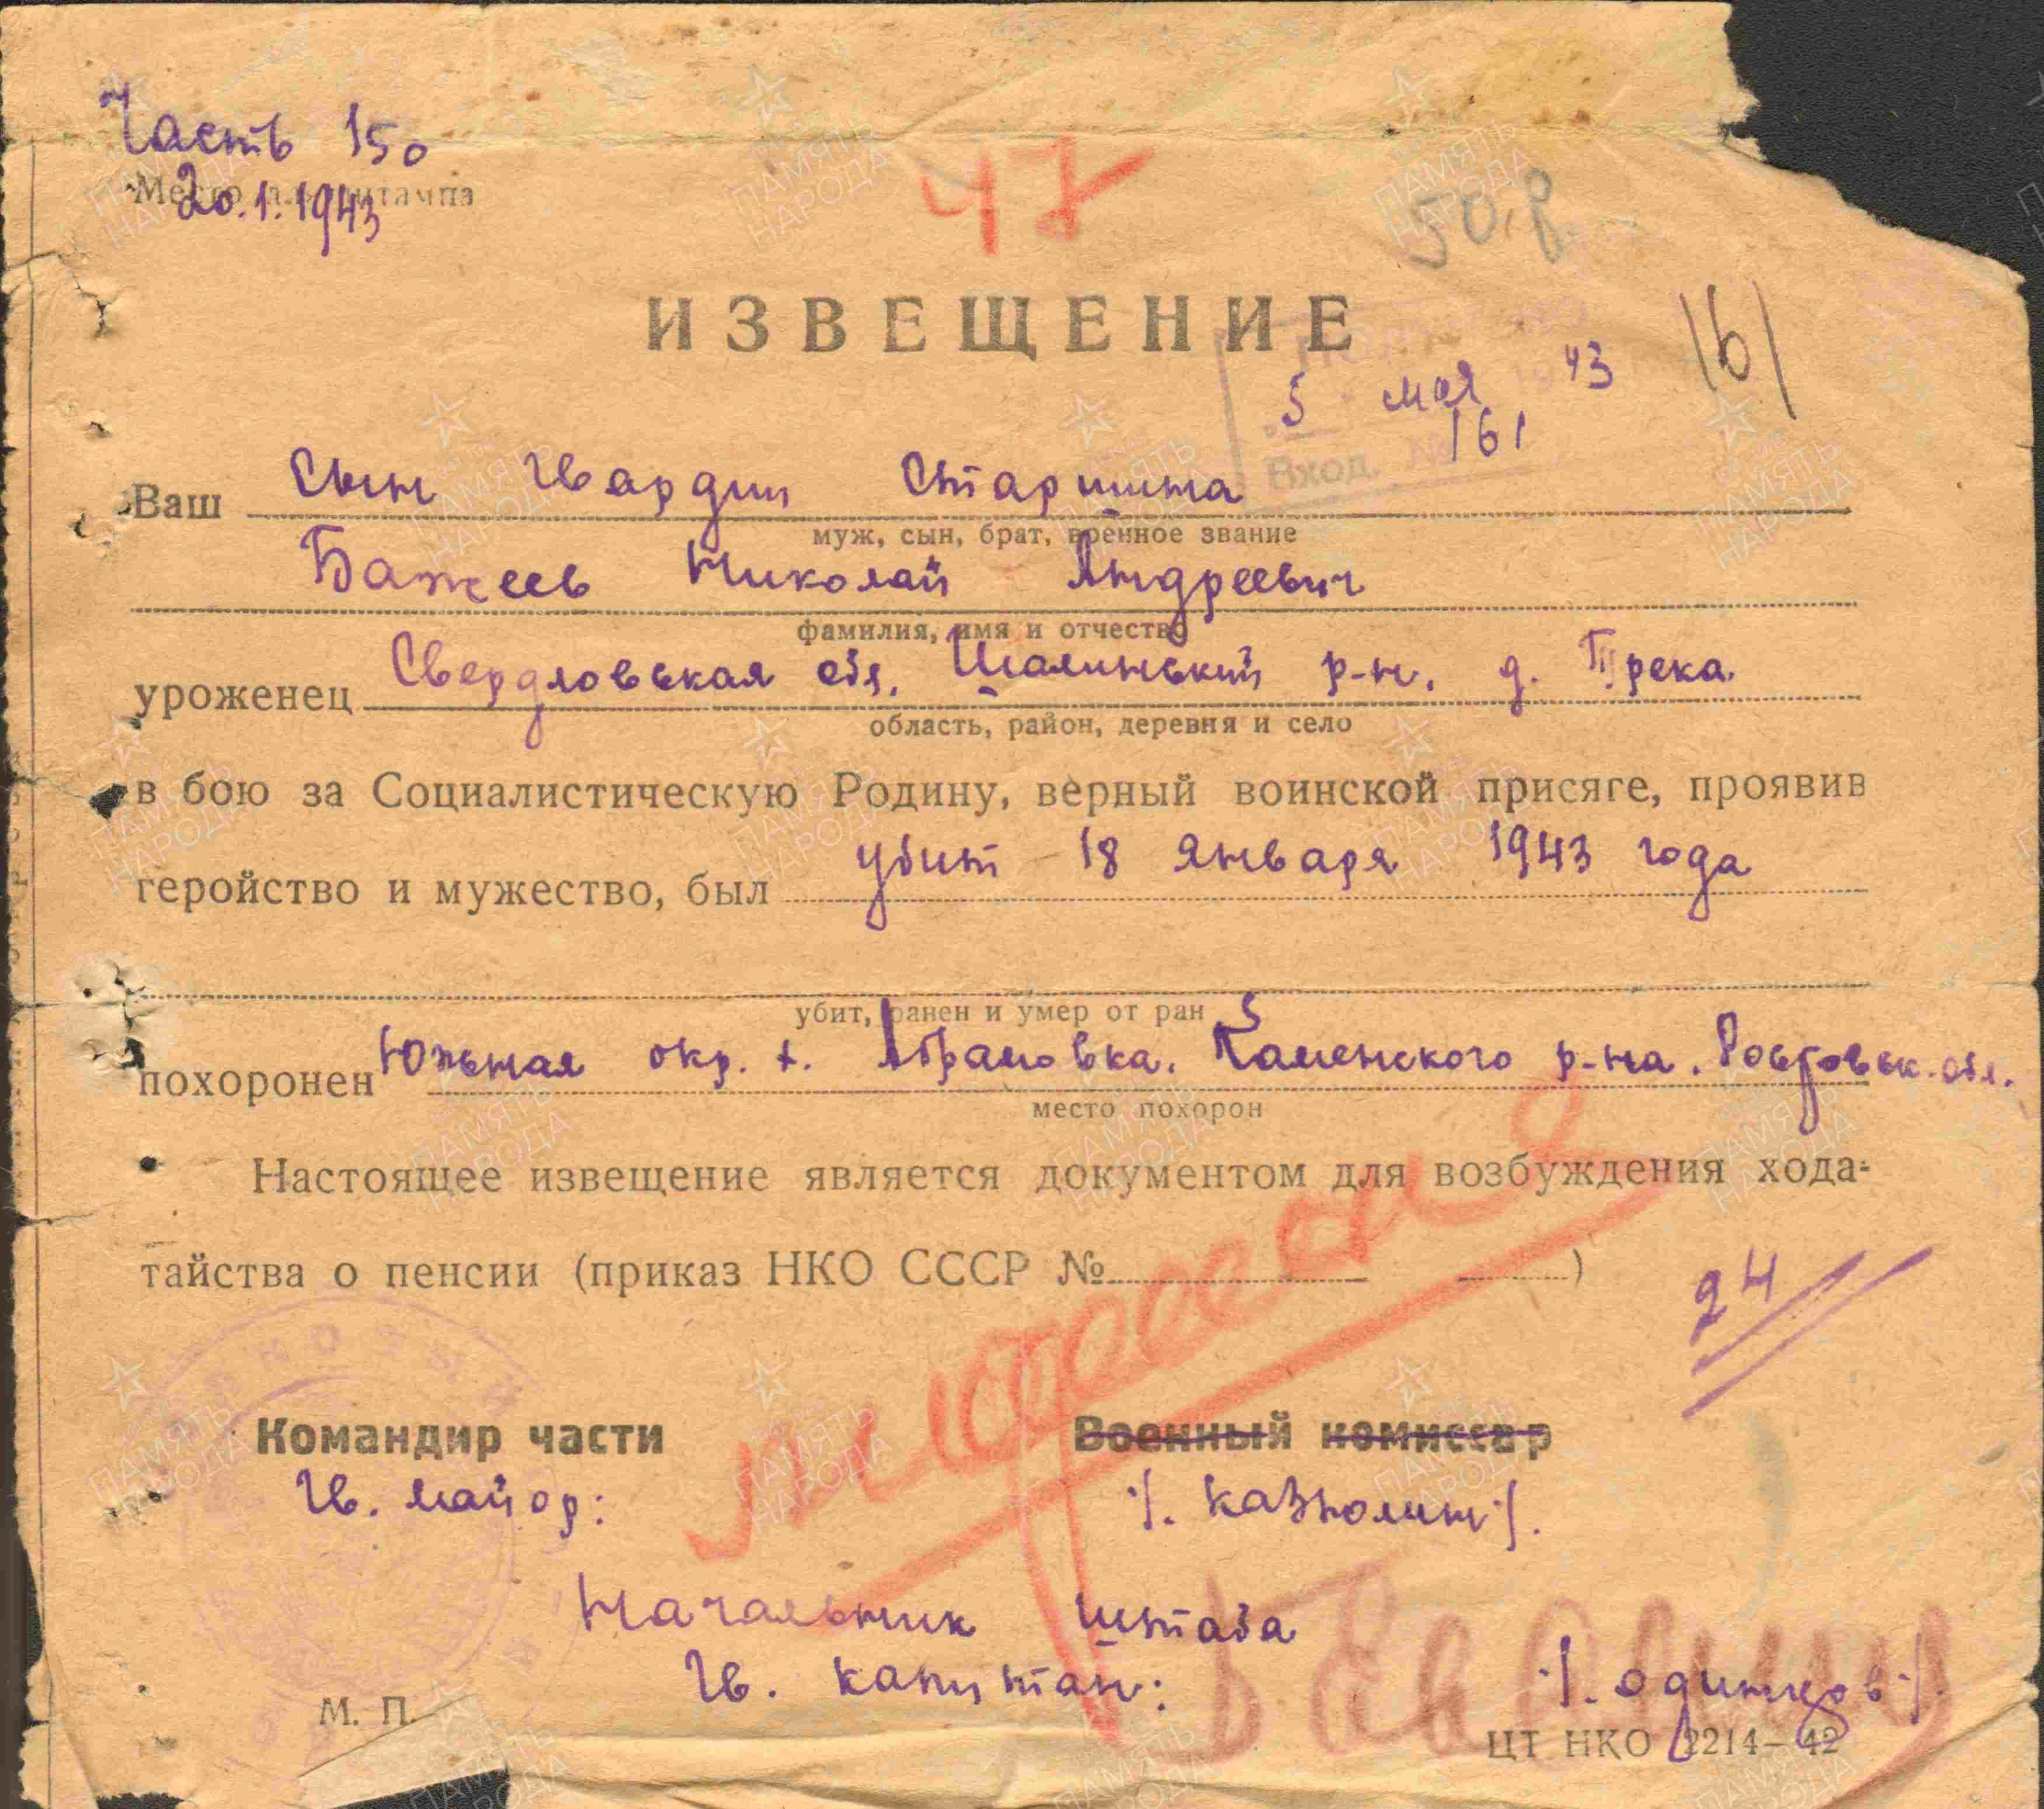 Часть 150
Место для штампа
20.1.1943
47
50 в.
ИЗВЕЩЕНИЕ
161
5 мая 1943
Вход. № 161
Ваш Сын Гвардии Старшина
муж, сын, брат, военное звание
Бажеев Николай Андреевич
фамилия, имя и отчество
уроженец Свердловская обл. Шалинский р-н. д. Трека.
область, район, деревня и село
в бою за Социалистическую Родину, верный воинской присяге, проявив
геройство и мужество, был убит 18 января 1943 года
убит, ранен и умер от ран
похоронен Южная окр. х. Абрамовка. Каменского р-на. Ростовск. обл.
место похорон
Настоящее извещение является документом для возбуждения хода-
тайства о пенсии (приказ НКО СССР № )
24
Командир части Военный комиссар
Гв. майор: /. Казнолин /.
Начальник штаба
Гв. капитан: /. Одинцов /.
М. П.
ЦТ НКО 2214—42
ПАМЯТЬ НАРОДА